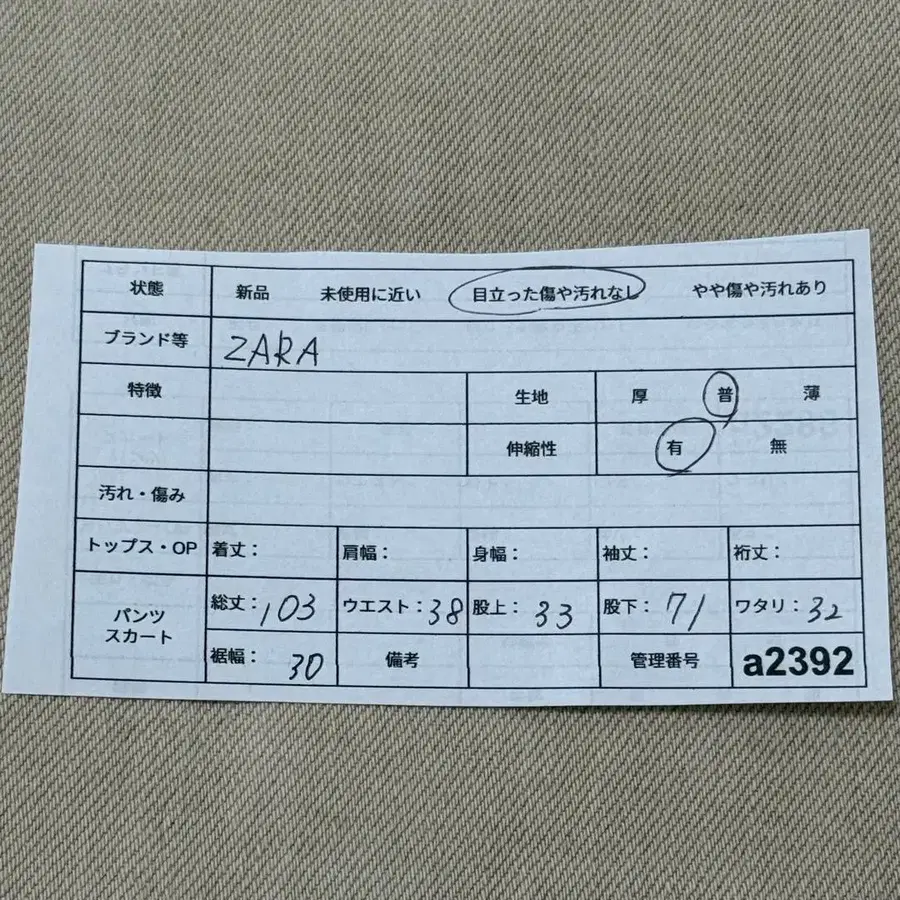 状態 新品 未使用に近い 目立った傷や汚れなし やや傷や汚れあり
ブランド等 ZARA
特徴 生地 厚 普 薄
伸縮性 有 無
汚れ・傷み
トップス・OP 着丈： 肩幅： 身幅： 袖丈： 裄丈：
パンツ スカート 総丈：103 ウエスト：38 股上：33 股下：71 ワタリ：32
裾幅：30 備考 管理番号 a2392